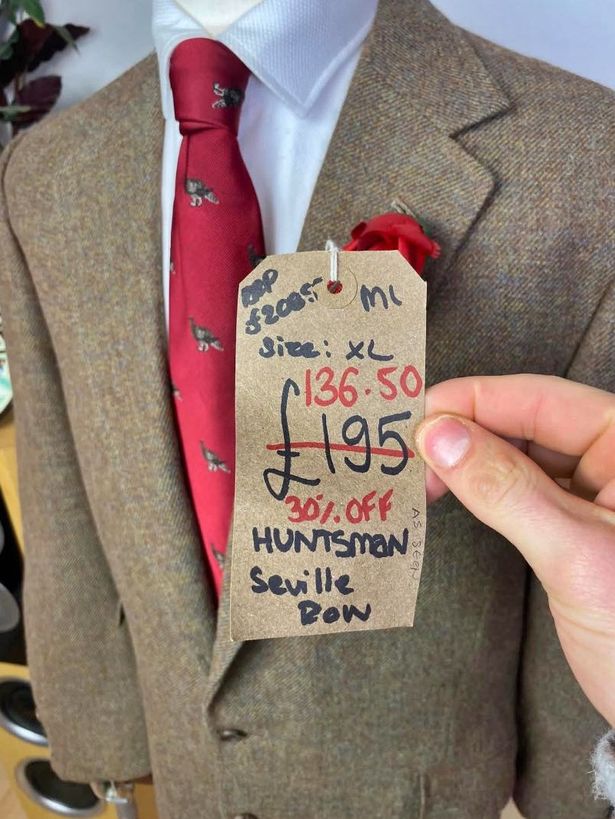 RRP
£2085
ML
Size: XL
136.50
£195
30% OFF
HUNTSMAN
Seville
ROW
AS SEEN